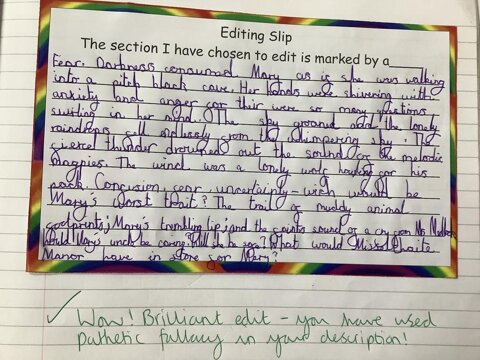 Editing Slip
The section I have chosen to edit is marked by a
Fear. Darkness consumed Mary as is she was walking
into a pitch black cave. Her hands were shivering with
anxiety and anger for their were so many questions
swirling in her mind. The sky groaned and the lonely
raindrops fell endlessly from the whimpering sky. The
fierce thunder drowned out the sound of the melodic
magpies. The wind was a lonely wolf howling for his
pack. Confusion, fear, uncertainty - wich would be
Mary's worst trait? The trail of muddy animal
footprints; Mary's trembling lip; and the faints sound of a cry from
Would Mary's uncle be caring? Will she be safe? What would
Manor have in store for Mary?
Wow! Brilliant edit - you have used
pathetic fallacy in your description!